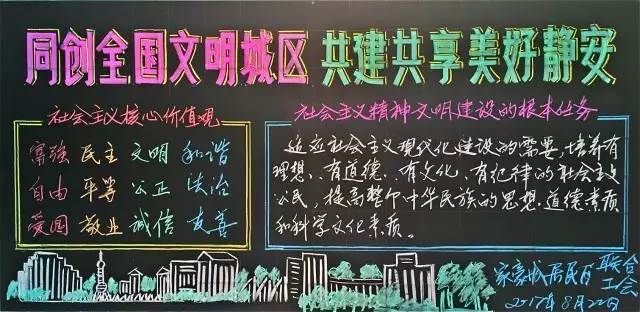 同创全国文明城区 共建共享美好静安
社会主义核心价值观
富强 民主 文明 和谐
自由 平等 公正 法治
爱国 敬业 诚信 友善
社会主义精神文明建设的根本任务
适应社会主义现代化建设的需要,培养有
理想、有道德、有文化、有纪律的社会主义
公民,提高整个中华民族的思想道德素质
和科学文化素质。
家豪城居民区 联合
工会
2017年8月22日